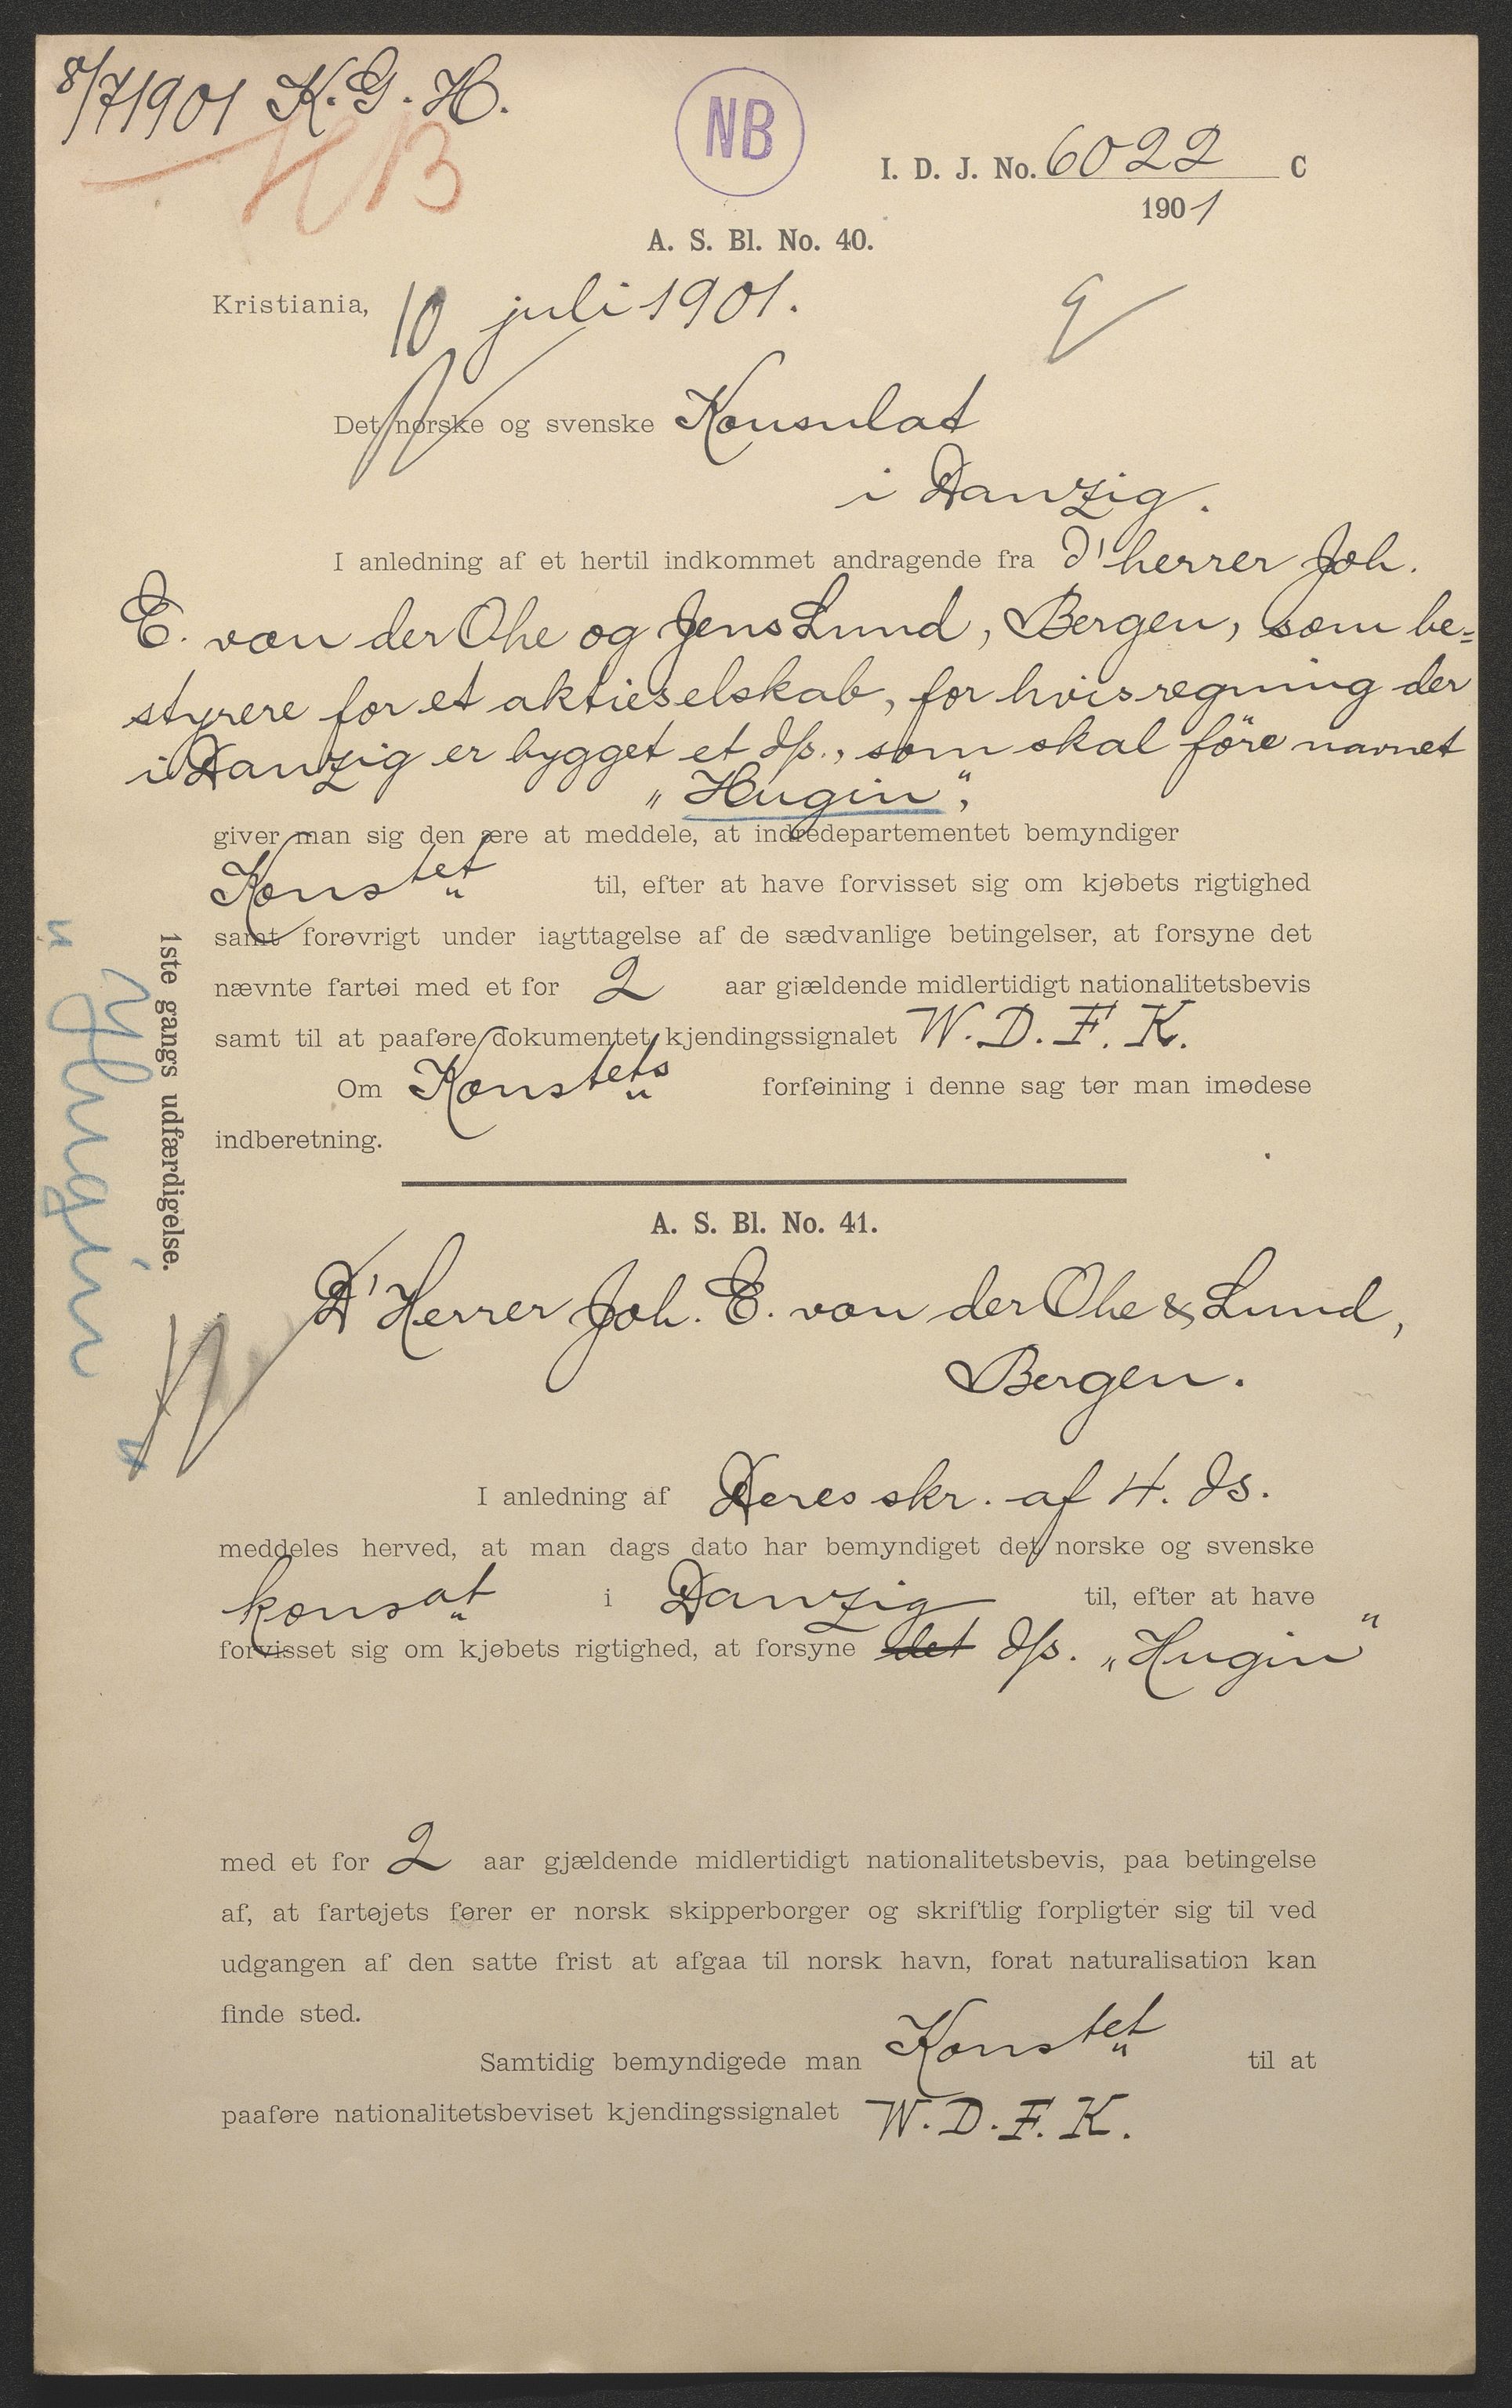 8/7 1901 K. G. H.
NB
I. D. J. No. 6022 C
1901
A. S. Bl. No. 40.
Kristiania, 10 juli 1901.
Det norske og svenske Konsulat
i Danzig.
I anledning af et hertil indkommet andragende fra d'herrer Joh.
E. von der Ohe og Jens Lund, Bergen, som be=
styrere for et aktieselskab, for hvis regning der
i Danzig er bygget et d/s., som skal føre navnet
"Hugin",
giver man sig den ære at meddele, at indredepartementet bemyndiger
Konstet til, efter at have forvisset sig om kjøbets rigtighed
samt forøvrigt under iagttagelse af de sædvanlige betingelser, at forsyne det
nævnte fartøi med et for 2 aar gjældende midlertidigt nationalitetsbevis
samt til at paaføre dokumentet kjendingssignalet W. D. F. K.
Om Konstets forføining i denne sag tør man imødese
indberetning.
1ste gangs udfærdigelse.
"Hugin"
A. S. Bl. No. 41.
D'Herrer Joh. E. von der Ohe & Lund,
Bergen.
I anledning af Deres skr. af 4. ds.
meddeles herved, at man dags dato har bemyndiget det norske og svenske
konsat i Danzig til, efter at have
forvisset sig om kjøbets rigtighed, at forsyne det d/s. "Hugin"
med et for 2 aar gjældende midlertidigt nationalitetsbevis, paa betingelse
af, at fartøjets fører er norsk skipperborger og skriftlig forpligter sig til ved
udgangen af den satte frist at afgaa til norsk havn, forat naturalisation kan
finde sted.
Samtidig bemyndigede man Konstet til at
paaføre nationalitetsbeviset kjendingssignalet W. D. F. K.